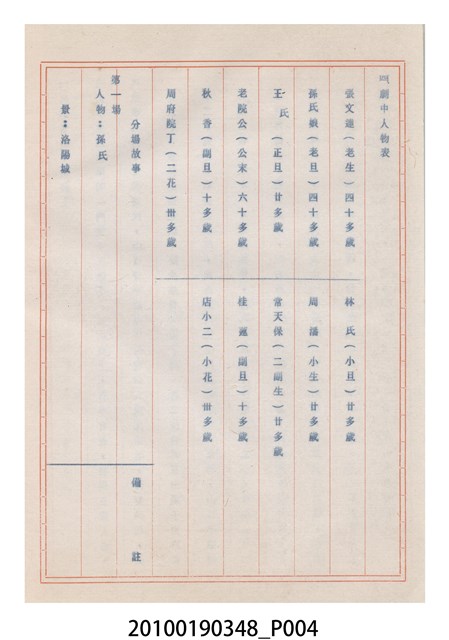 四劇中人物表
張文達（老生）四十多歲
孫氏娘（老旦）四十多歲
王氏（正旦）廿多歲
老院公（公末）六十多歲
秋香（副旦）十多歲
周府院丁（二花）卅多歲
林氏（小旦）廿多歲
周潘（小生）廿多歲
常天保（二副生）廿多歲
桂蓮（副旦）十多歲
店小二（小花）卅多歲
分場故事
備註
第一場
人物：孫氏
景：洛陽城
20100190348_P004